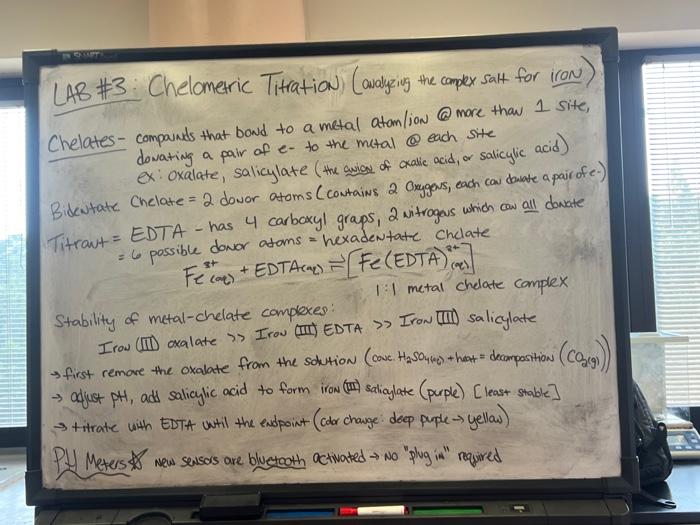 SMART
LAB #3: Chelometric Titration (analyzing the complex salt for iron)
Chelates - compounds that bond to a metal atom/ion @ more than 1 site,
donating a pair of e- to the metal @ each site
ex: oxalate, salicylate (the anion of oxalic acid, or salicylic acid)
Bidentate Chelate = 2 donor atoms (contains 2 oxygens, each can donate a pair of e-)
Titrant = EDTA - has 4 carboxyl groups, 2 nitrogens which can all donate
= 6 possible donor atoms = hexadentate chelate
Fe³⁺(aq) + EDTA(aq) ⇌ [Fe(EDTA)³⁺(aq)]
1:1 metal chelate complex
Stability of metal-chelate complexes:
Iron (III) oxalate >> Iron (III) EDTA >> Iron (III) salicylate
→ first remove the oxalate from the solution (conc. H₂SO₄(aq) + heat = decomposition (CO₂(g)))
→ adjust pH, add salicylic acid to form iron (III) salicylate (purple) [least stable]
→ titrate with EDTA until the endpoint (color change: deep purple → yellow)
PH Meters☆ new sensors are bluetooth activated → no "plug in" required